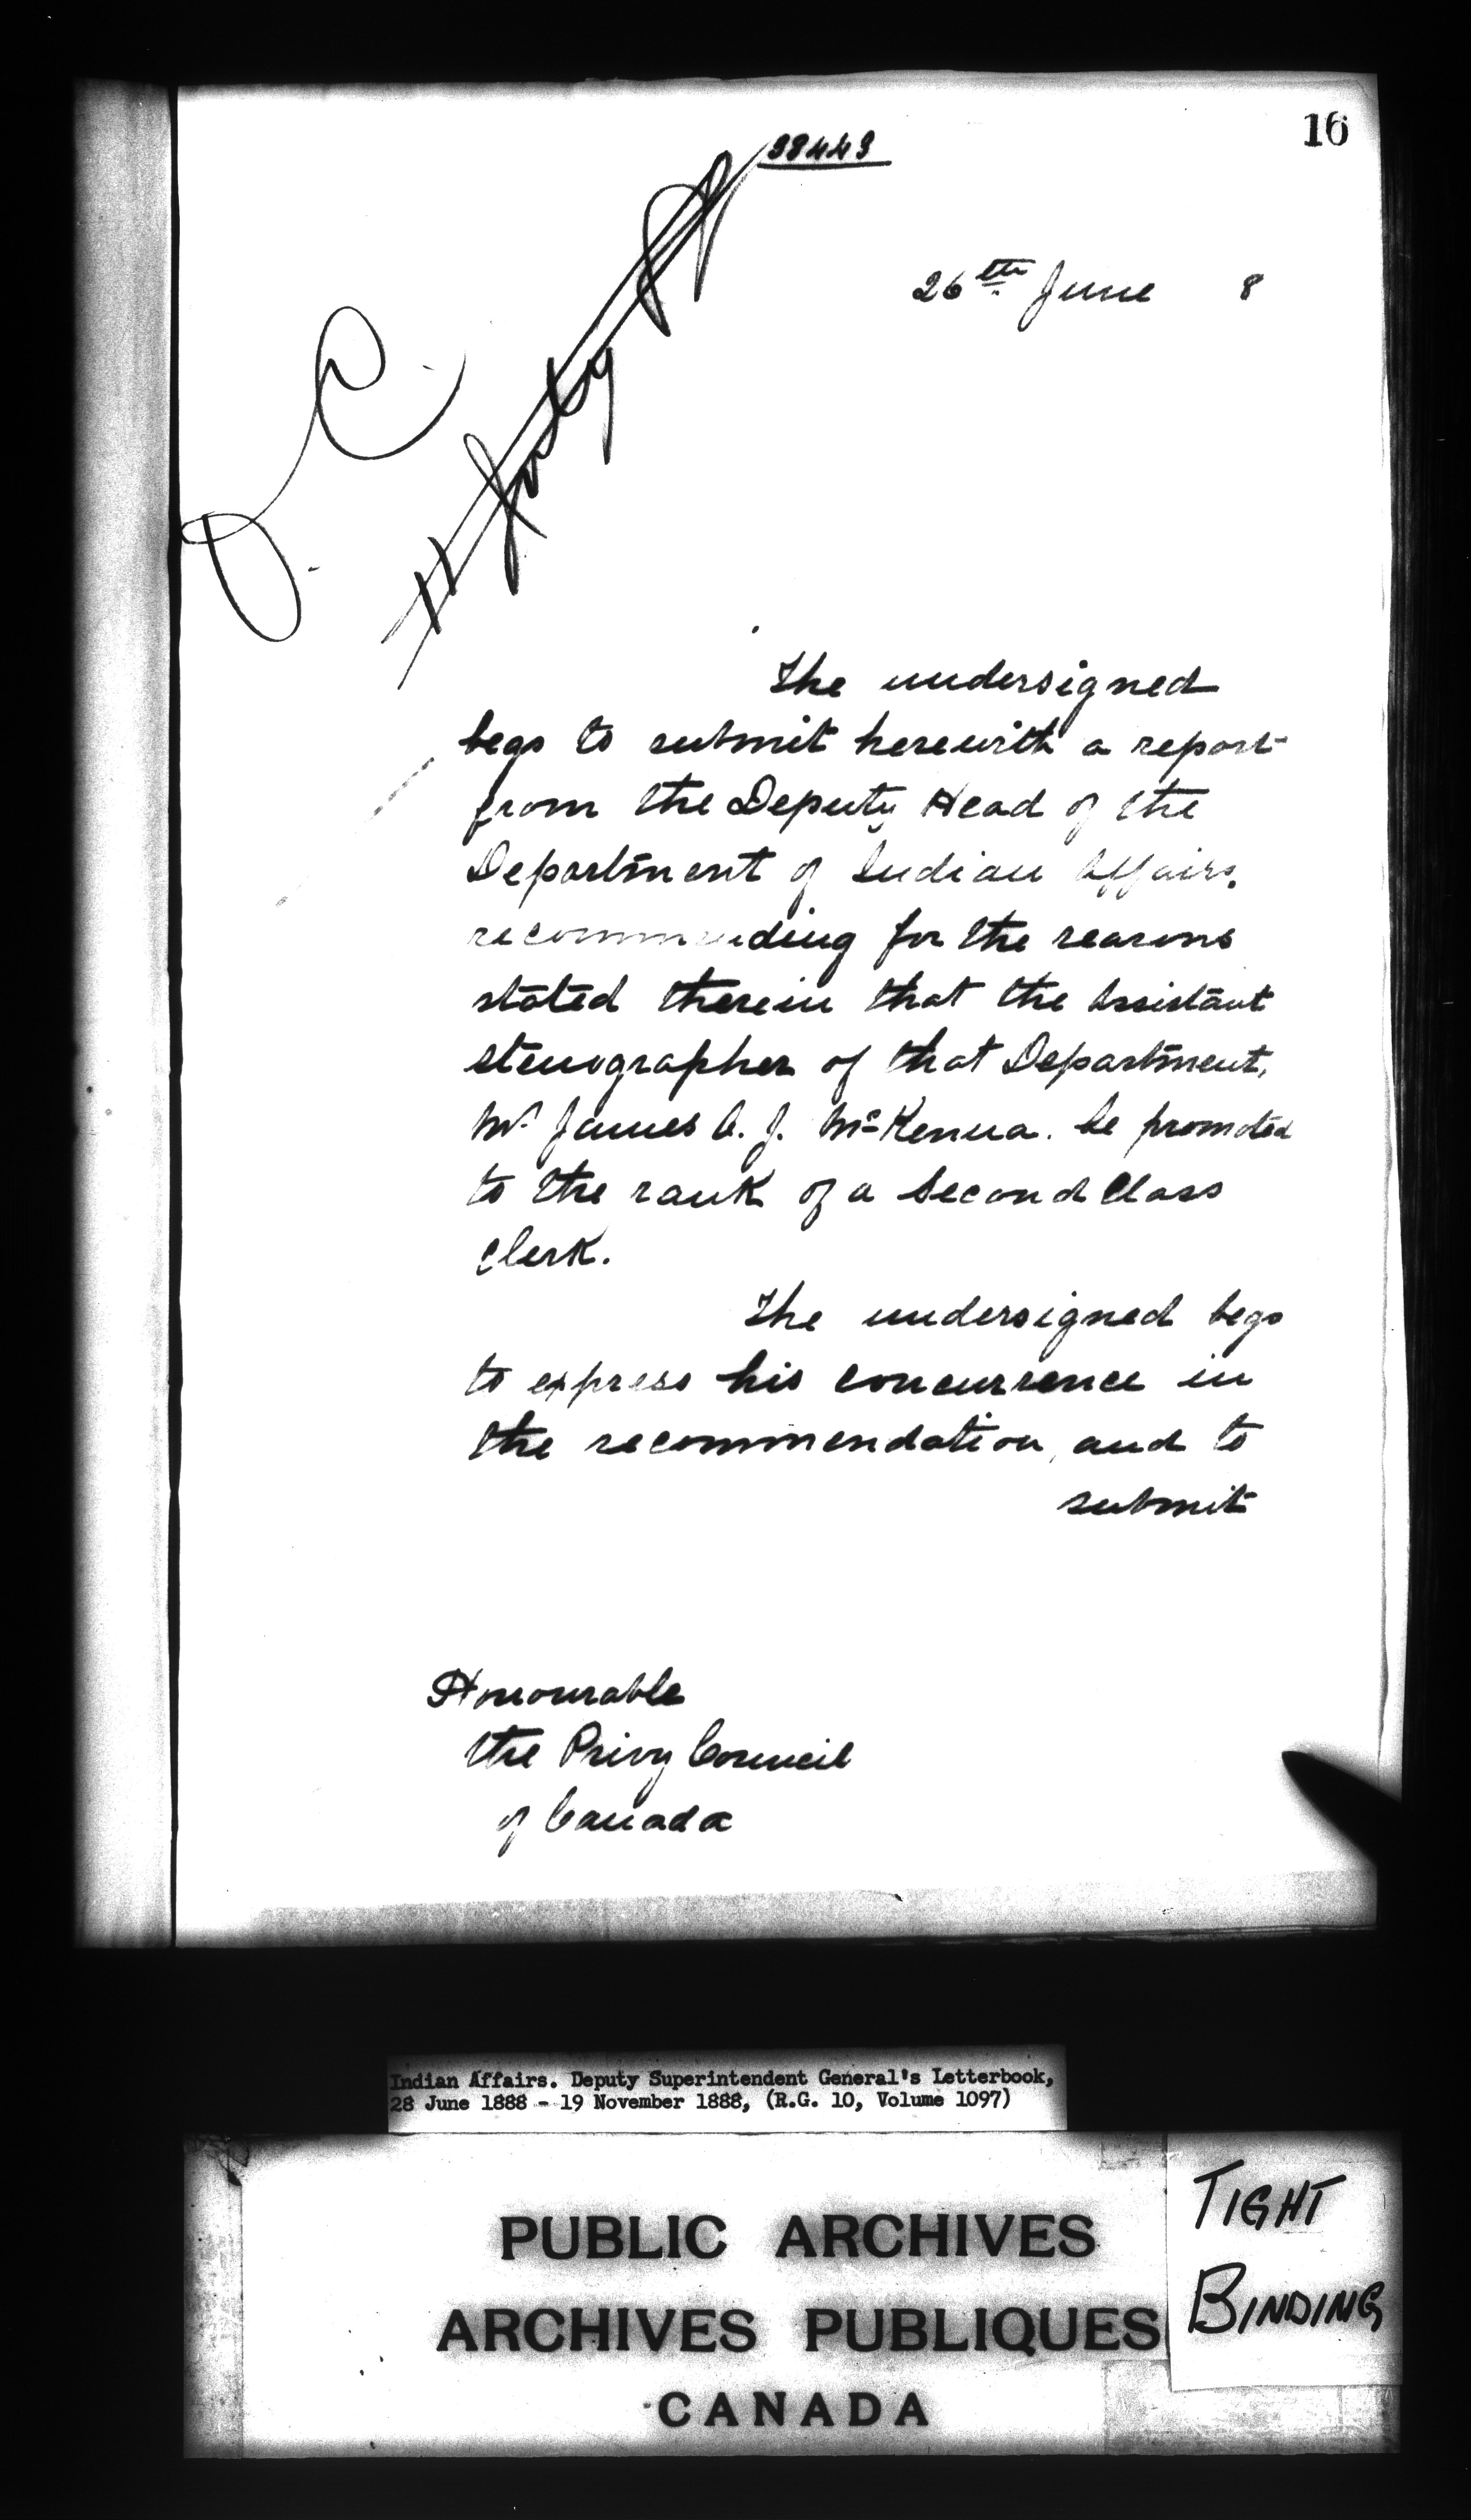 16
38443
26th June 8
O. C.
11 July
The undersigned
begs to submit herewith a report
from the Deputy Head of the
Department of Indian Affairs,
recommending for the reasons
stated therein that the Assistant
stenographer of that Department,
Mr James A. J. McKenna. be promoted
to the rank of a Second Class
Clerk.
The undersigned begs
to express his concurrence in
the recommendation, and to
submit
Honourable
the Privy Council
of Canada
Indian Affairs. Deputy Superintendent General's Letterbook,
28 June 1888 - 19 November 1888, (R.G. 10, Volume 1097)
PUBLIC ARCHIVES
ARCHIVES PUBLIQUES
CANADA
TIGHT
BINDING